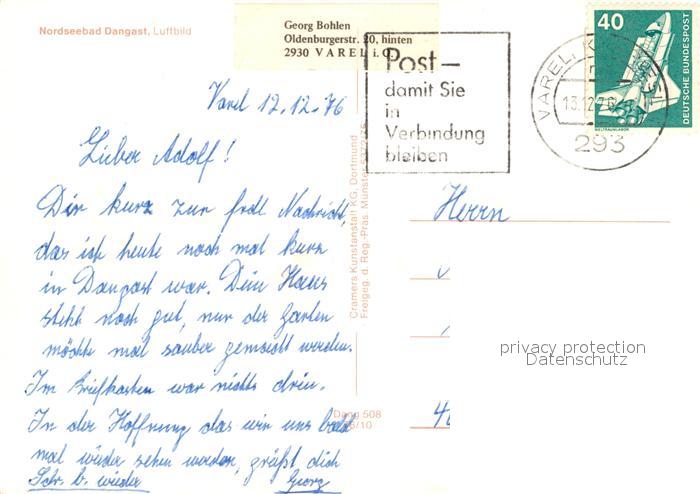 Nordseebad Dangast, Luftbild
Georg Bohlen
Oldenburgerstr. 20, hinten
2930 VAREL i. O.
Post–
damit Sie
in
Verbindung
bleiben
VAREL,
13.12.76
293
40
DEUTSCHE BUNDESPOST
WELTRAUMLABOR
Varel 12.12.76
Lieber Adolf!
Dir kurz zur frdl Nachricht,
das ich heute noch mal kurz
in Dangast war. Dein Haus
steht noch gut, nur der Garten
möchte mal sauber gemacht werden.
Im Briefkasten war nichts drin.
In der Hoffnung das wir uns bald
mal wieder sehen werden, grüßt dich
Schr. b. wieder Georg
Cramers Kunstanstalt KG, Dortmund
Freigeg. d. Reg.-Präs. Münster
Dang 508
Herrn
privacy protection
Datenschutz